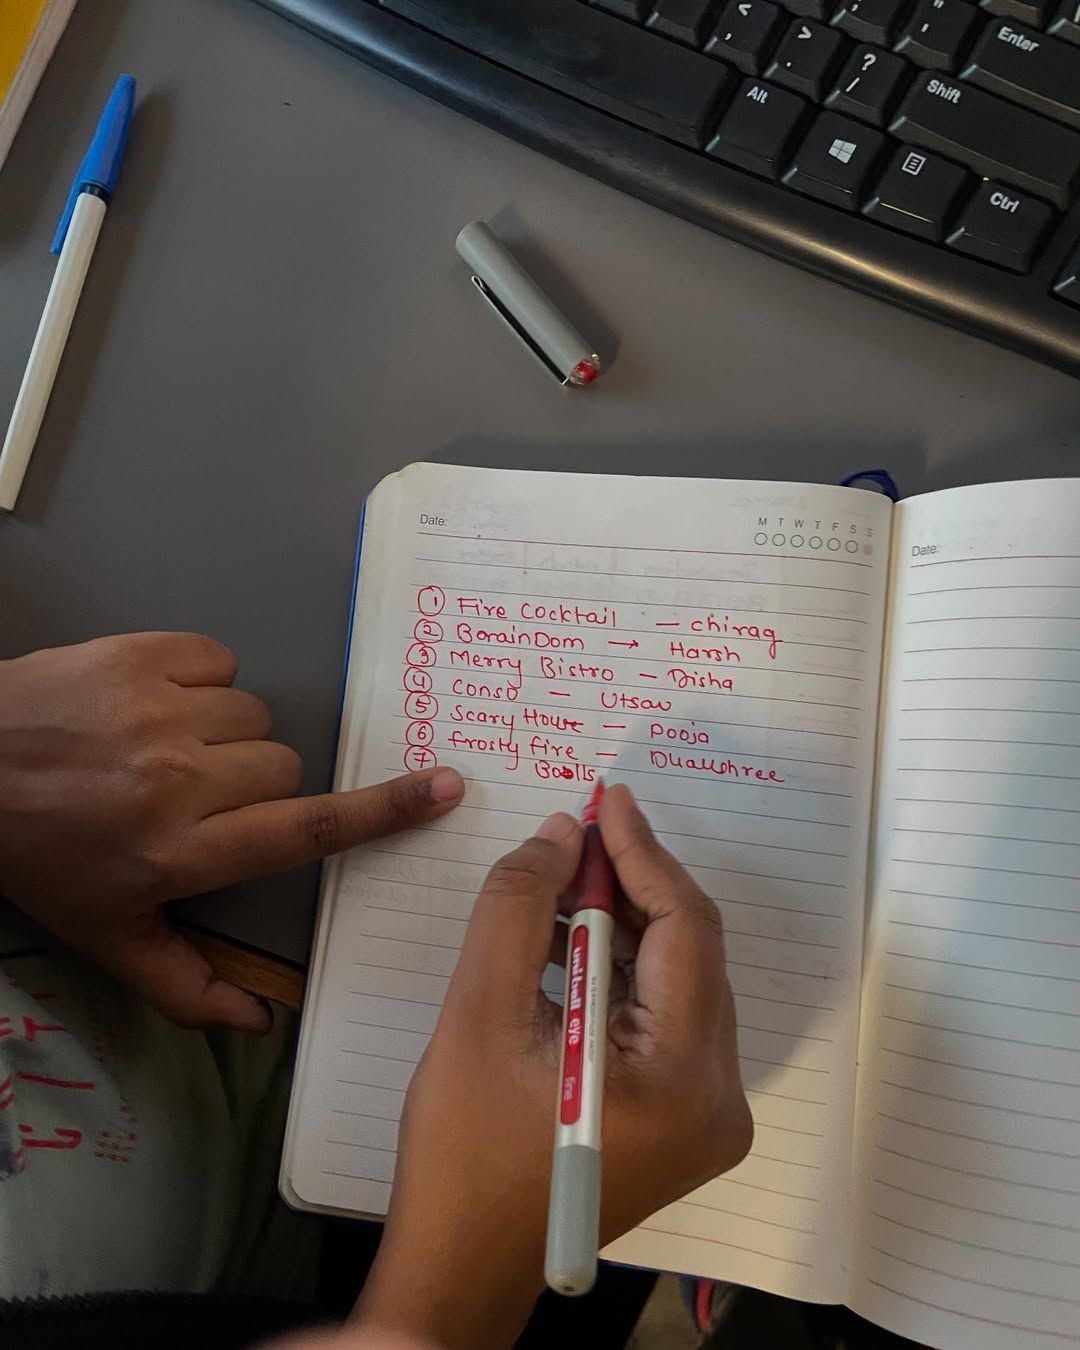 < ,
> .
? /
Enter
Alt
Shift
Ctrl
Date:
M T W T F S S
Date:
① Fire Cocktail – chirag
② BorainDom → Harsh
③ Merry Bistro – Disha
④ Conso – Utsav
⑤ Scary House – Pooja
⑥ frosty fire – Dhanshree
⑦ Balls
uni-ball eye fine